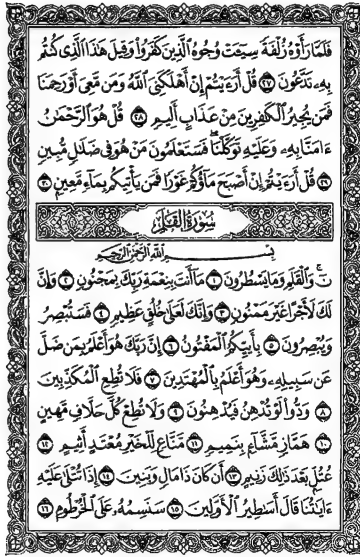 فَلَمَّا رَأَوْهُ زُلْفَةً سِيٓـَٔتْ وُجُوهُ ٱلَّذِينَ كَفَرُوا۟ وَقِيلَ هَٰذَا ٱلَّذِى كُنتُم
بِهِۦ تَدَّعُونَ ٢٧ قُلْ أَرَءَيْتُمْ إِنْ أَهْلَكَنِىَ ٱللَّهُ وَمَن مَّعِىَ أَوْ رَحِمَنَا
فَمَن يُجِيرُ ٱلْكَٰفِرِينَ مِنْ عَذَابٍ أَلِيمٍ ٢٨ قُلْ هُوَ ٱلرَّحْمَٰنُ
ءَامَنَّا بِهِۦ وَعَلَيْهِ تَوَكَّلْنَا فَسَتَعْلَمُونَ مَنْ هُوَ فِى ضَلَٰلٍ مُّبِينٍ
٢٩ قُلْ أَرَءَيْتُمْ إِنْ أَصْبَحَ مَآؤُكُمْ غَوْرًا فَمَن يَأْتِيكُم بِمَآءٍ مَّعِينٍۭ ٣٠
سُورَةُ القَلَمِ
بِسْمِ ٱللَّهِ ٱلرَّحْمَٰنِ ٱلرَّحِيمِ
نٓ وَٱلْقَلَمِ وَمَا يَسْطُرُونَ ١ مَآ أَنتَ بِنِعْمَةِ رَبِّكَ بِمَجْنُونٍ ٢ وَإِنَّ
لَكَ لَأَجْرًا غَيْرَ مَمْنُونٍ ٣ وَإِنَّكَ لَعَلَىٰ خُلُقٍ عَظِيمٍ ٤ فَسَتُبْصِرُ
وَيُبْصِرُونَ ٥ بِأَييِّكُمُ ٱلْمَفْتُونُ ٦ إِنَّ رَبَّكَ هُوَ أَعْلَمُ بِمَن ضَلَّ
عَن سَبِيلِهِۦ وَهُوَ أَعْلَمُ بِٱلْمُهْتَدِينَ ٧ فَلَا تُطِعِ ٱلْمُكَذِّبِينَ
٨ وَدُّوا۟ لَوْ تُدْهِنُ فَيُدْهِنُونَ ٩ وَلَا تُطِعْ كُلَّ حَلَّافٍ مَّهِينٍ
١٠ هَمَّازٍ مَّشَّآءٍۭ بِنَمِيمٍ ١١ مَّنَّاعٍ لِّلْخَيْرِ مُعْتَدٍ أَثِيمٍ ١٢
عُتُلٍّۭ بَعْدَ ذَٰلِكَ زَنِيمٍ ١٣ أَن كَانَ ذَا مَالٍ وَبَنِينَ ١٤ إِذَا تُتْلَىٰ عَلَيْهِ
ءَايَٰتُنَا قَالَ أَسَٰطِيرُ ٱلْأَوَّلِينَ ١٥ سَنَسِمُهُۥ عَلَى ٱلْخُرْطُومِ ١٦